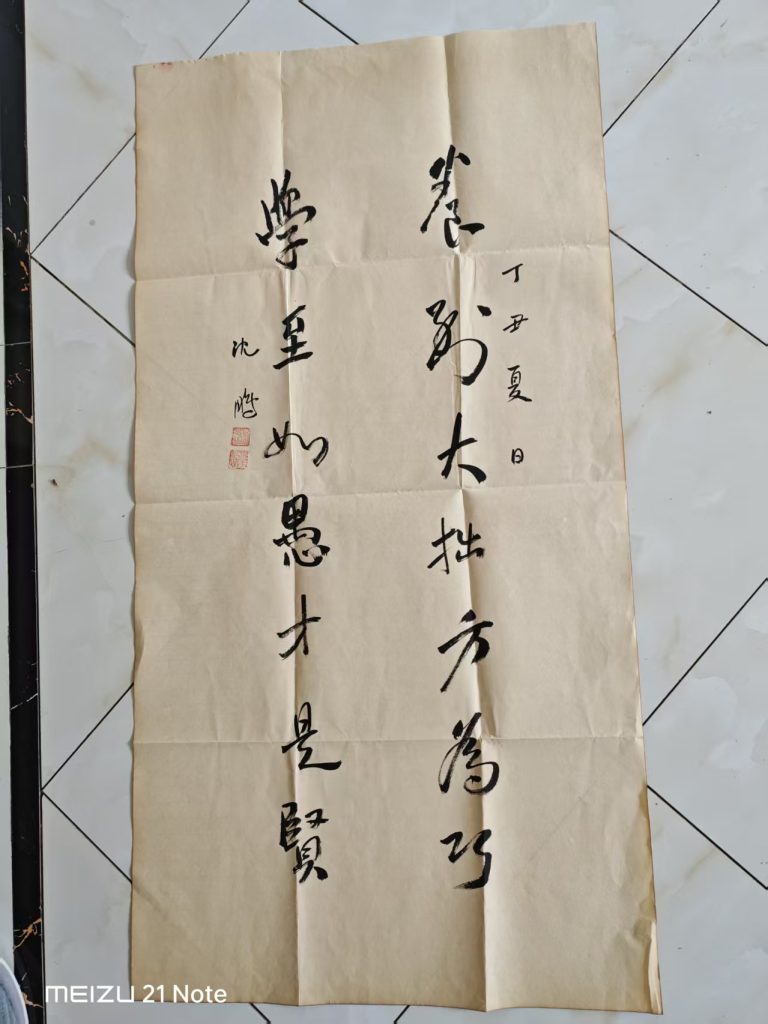 丁丑夏日
养到大拙方为巧
学至如愚才是賢
沈鹏
MEIZU 21 Note